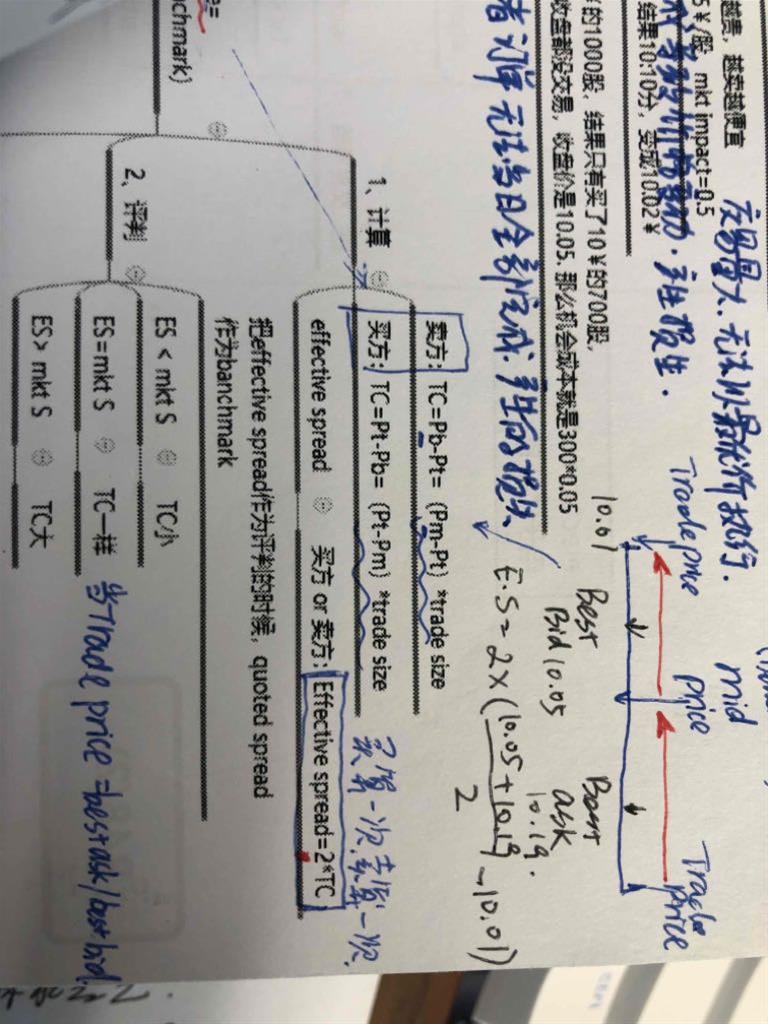 越贵，越卖越便宜
5￥/股，mkt impact=0.5
结果10:10分，变成10.02￥
交易量大，无法以最优价执行.
产生损失.
的1000股，结果只有买了10￥的700股，
收盘都没交易，收盘价是10.05. 那么机会成本就是300*0.05
者订单无法当日全部完成. 产生的损失
Trade price
mid price
Trade price
10.01
Best Bid 10.05
Best ask 10.19.
E.S = 2×(
10.05+10.19
2
-10.01)
chmark)
1、计算
卖方：TC=Pb-Pt=（Pm-Pt）*trade size
买方：TC=Pt-Pb=（Pt-Pm）*trade size
买算一次,卖算一次.
effective spread
买方 or 卖方：Effective spread=2*TC
2、评判
把effective spread作为评判的时候，quoted spread
作为banchmark
ES < mkt S
TC小
ES=mkt S
TC一样
当Trade price = best ask/best bid.
ES> mkt S
TC大